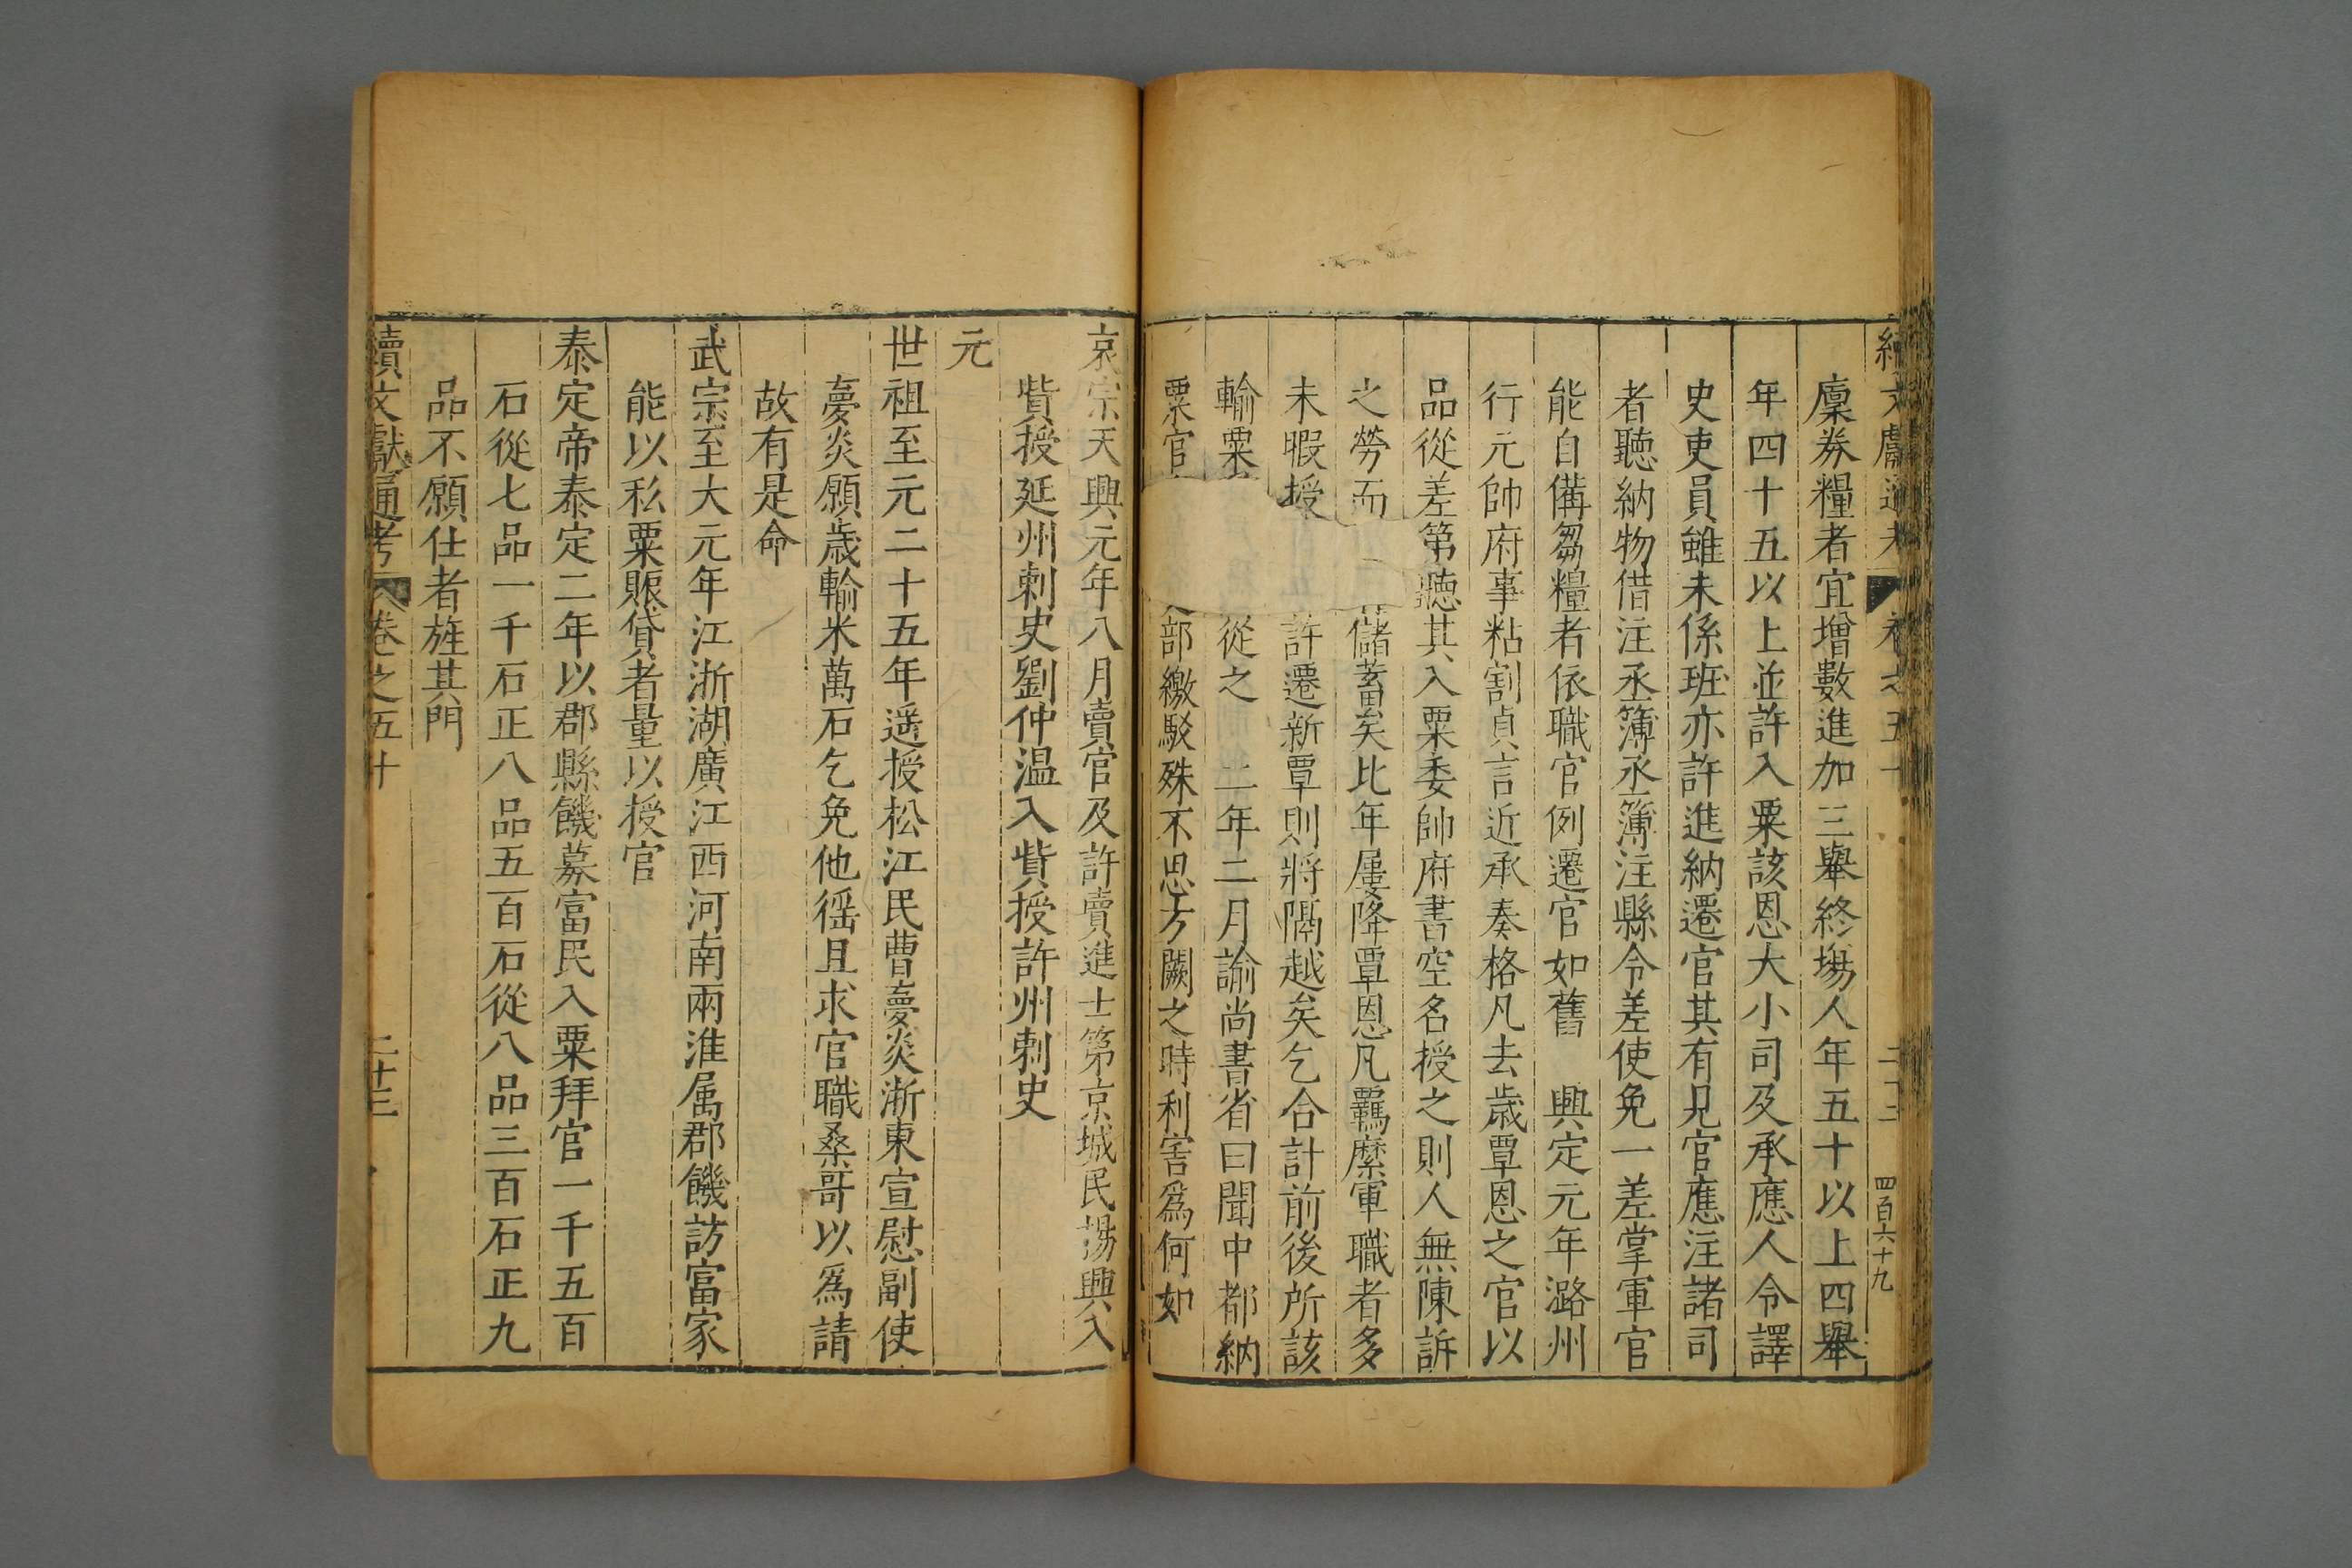 廩券糧者宜增數進加三舉終場人年五十以上四舉
年四十五以上並許入粟該恩大小司及承應人令譯
史吏員雖未係班亦許進納遷官其有見官應注諸司
者聽納物借注丞簿丞簿注縣令差使免一差掌軍官
能自備芻糧者依職官例遷官如舊　興定元年潞州
行元帥府事粘割貞言近承奏格凡去歲覃恩之官以
品從差第聽其入粟委帥府書空名授之則人無陳訴
之勞而　儲蓄矣比年屢降覃恩凡羈縻軍職者多
未暇授　許遷新覃則將隔越矣乞合計前後所該
輸粟　從之　二年二月諭尚書省曰聞中都納
粟官　部繳駁殊不思方闕之時利害爲何如
哀宗天興元年八月賣官及許賣進士第京城民楊興入
貲授延州刺史劉仲温入貲授許州刺史
元
世祖至元二十五年遥授松江民曹夢炎浙東宣慰副使
夢炎願歲輸米萬石乞免他徭且求官職桑哥以爲請
故有是命
武宗至大元年江浙湖廣江西河南兩淮属郡饑訪富家
能以私粟賑貸者量以授官
泰定帝泰定二年以郡縣饑募富民入粟拜官一千五百
石從七品一千石正八品五百石從八品三百石正九
品不願仕者旌其門
續文獻通考　卷之五十　二十三
四百六十九